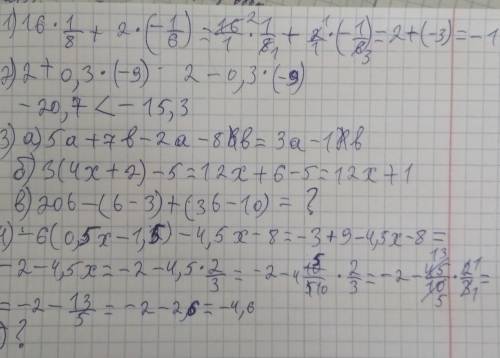 1) 16 · 1/8 + 2 · (-1/6) = 16/1 · 1/8 + 2/1 · (-1/6) = 2 + (-3) = -1
2) 2 + 0,3 · (-9) 2 - 0,3 · (-9)
-20,7 < -15,3
3) а) 5а + 7в - 2а - 8в = 3а - 1в
б) 3(4х + 2) - 5 = 12х + 6 - 5 = 12х + 1
в) 20б - (б - 3) + (3б - 10) = ?
4) -6(0,5х - 1,5) - 4,5х - 8 = -3 + 9 - 4,5х - 8 =
-2 - 4,5х = -2 - 4,5 · 2/3 = -2 - 4 5/10 · 2/3 = -2 - 45/10 · 2/3 =
= -2 - 13/5 = -2 - 2,6 = -4,6
) ?